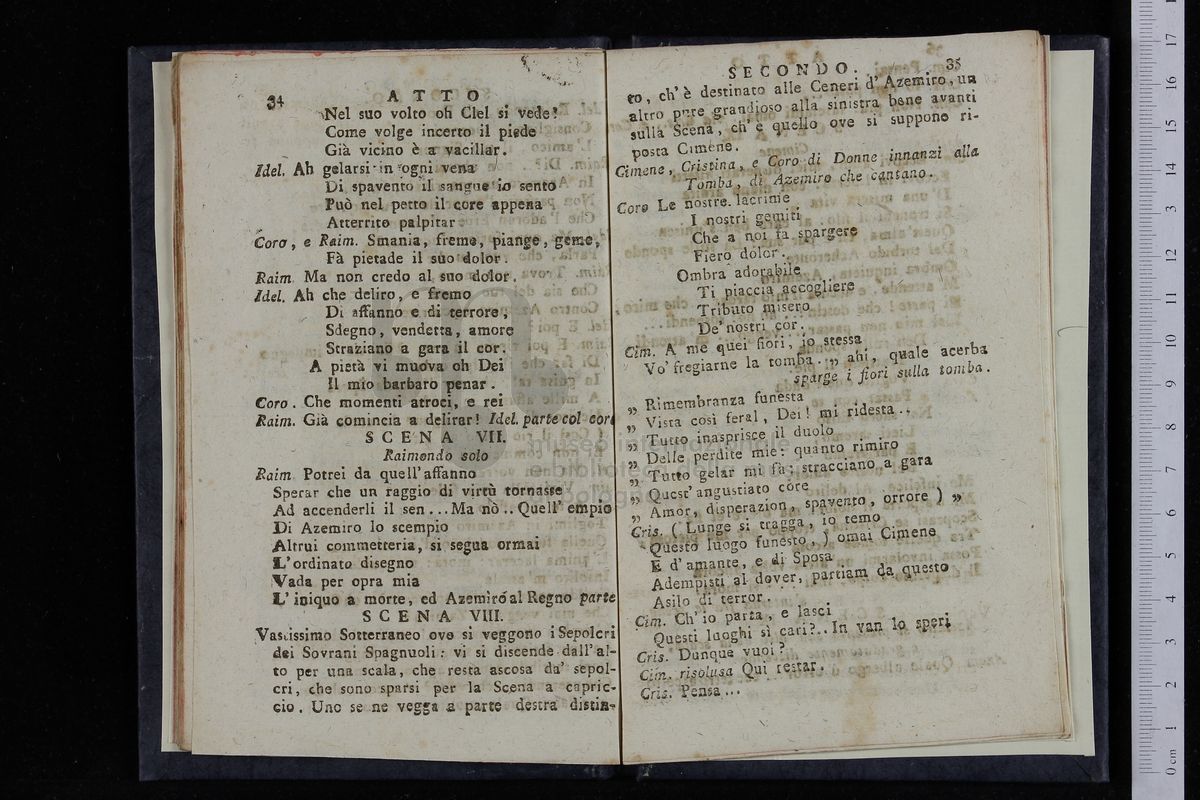 34
ATTO
Nel suo volto oh Ciel si vede!
Come volge incerto il piede
Già vicino è a vacillar.
Idel. Ah gelarsi in ogni vena
Di spavento il sangue io sento
Può nel petto il core appena
Atterrito palpitar
Coro, e Raim. Smania, freme, piange, geme,
Fà pietade il suo dolor.
Raim. Ma non credo al suo dolor.
Idel. Ah che deliro, e fremo
Di affanno e di terrore,
Sdegno, vendetta, amore
Straziano a gara il cor.
A pietà vi muova oh Dei
Il mio barbaro penar.
Coro. Che momenti atroci, e rei
Raim. Già comincia a delirar! Idel. parte col coro
SCENA VII.
Raimondo solo
Raim. Potrei da quell'affanno
Sperar che un raggio di virtù tornasse
Ad accenderli il sen... Ma nò.. Quell' empio
Di Azemiro lo scempio
Altrui commetteria, si segua ormai
L'ordinato disegno
Vada per opra mia
L'iniquo a morte, ed Azemiro al Regno parte
SCENA VIII.
Vastissimo Sotterraneo ove si veggono i Sepolcri
dei Sovrani Spagnuoli: vi si discende dall'al-
to per una scala, che resta ascosa da' sepol-
cri, che sono sparsi per la Scena a capric-
cio. Uno se ne vegga a parte destra distin-
SECONDO. 35
to, ch'è destinato alle Ceneri d'Azemiro, un
altro pure grandioso alla sinistra bene avanti
sulla Scena, ch'è quello ove si suppone ri-
posta Cimene.
Cimene, Cristina, e Coro di Donne innanzi alla
Tomba, di Azemiro che cantano.
Coro Le nostre lacrime
I nostri gemiti
Che a noi fa spargere
Fiero dolor.
Ombra adorabile
Ti piaccia accogliere
Tributo misero
De' nostri cor.
Cim. A me quei fiori, io stessa
Vo' fregiarne la tomba. „ ahi, quale acerba
sparge i fiori sulla tomba.
„ Rimembranza funesta
„ Vista così feral, Dei! mi ridesta..
„ Tutto inasprisce il duolo
„ Delle perdite mie: quanto rimiro
„ Tutto gelar mi fà: stracciano a gara
„ Quest'angustiato core
„ Amor, disperazion, spavento, orrore ) „
Cris. (Lunge si tragga, io temo
Questo luogo funesto, ) omai Cimene
E d'amante, e di Sposa
Adempisti al dover, partiam da questo
Asilo di terror.
Cim. Ch'io parta, e lasci
Questi luoghi sì cari?.. In van lo speri
Cris. Dunque vuoi?
Cim. risolusa Qui restar.
Cris. Pensa...